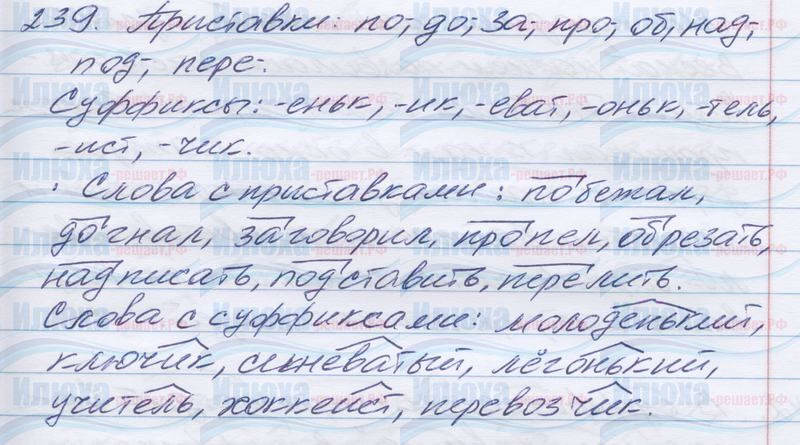 239. Приставки: по-, до-, за-, про-, об-, над-,
под-, пере-.
Суффиксы: -еньк, -ик, -еват, -оньк, -тель,
-ист, -чик.
: Слова с приставками: побежал,
догнал, заговорил, пропел, обрезать,
надписать, подставить, перелить.
Слова с суффиксами: молоденький,
ключик, синеватый, лёгонький,
учитель, хоккеист, перевозчик.